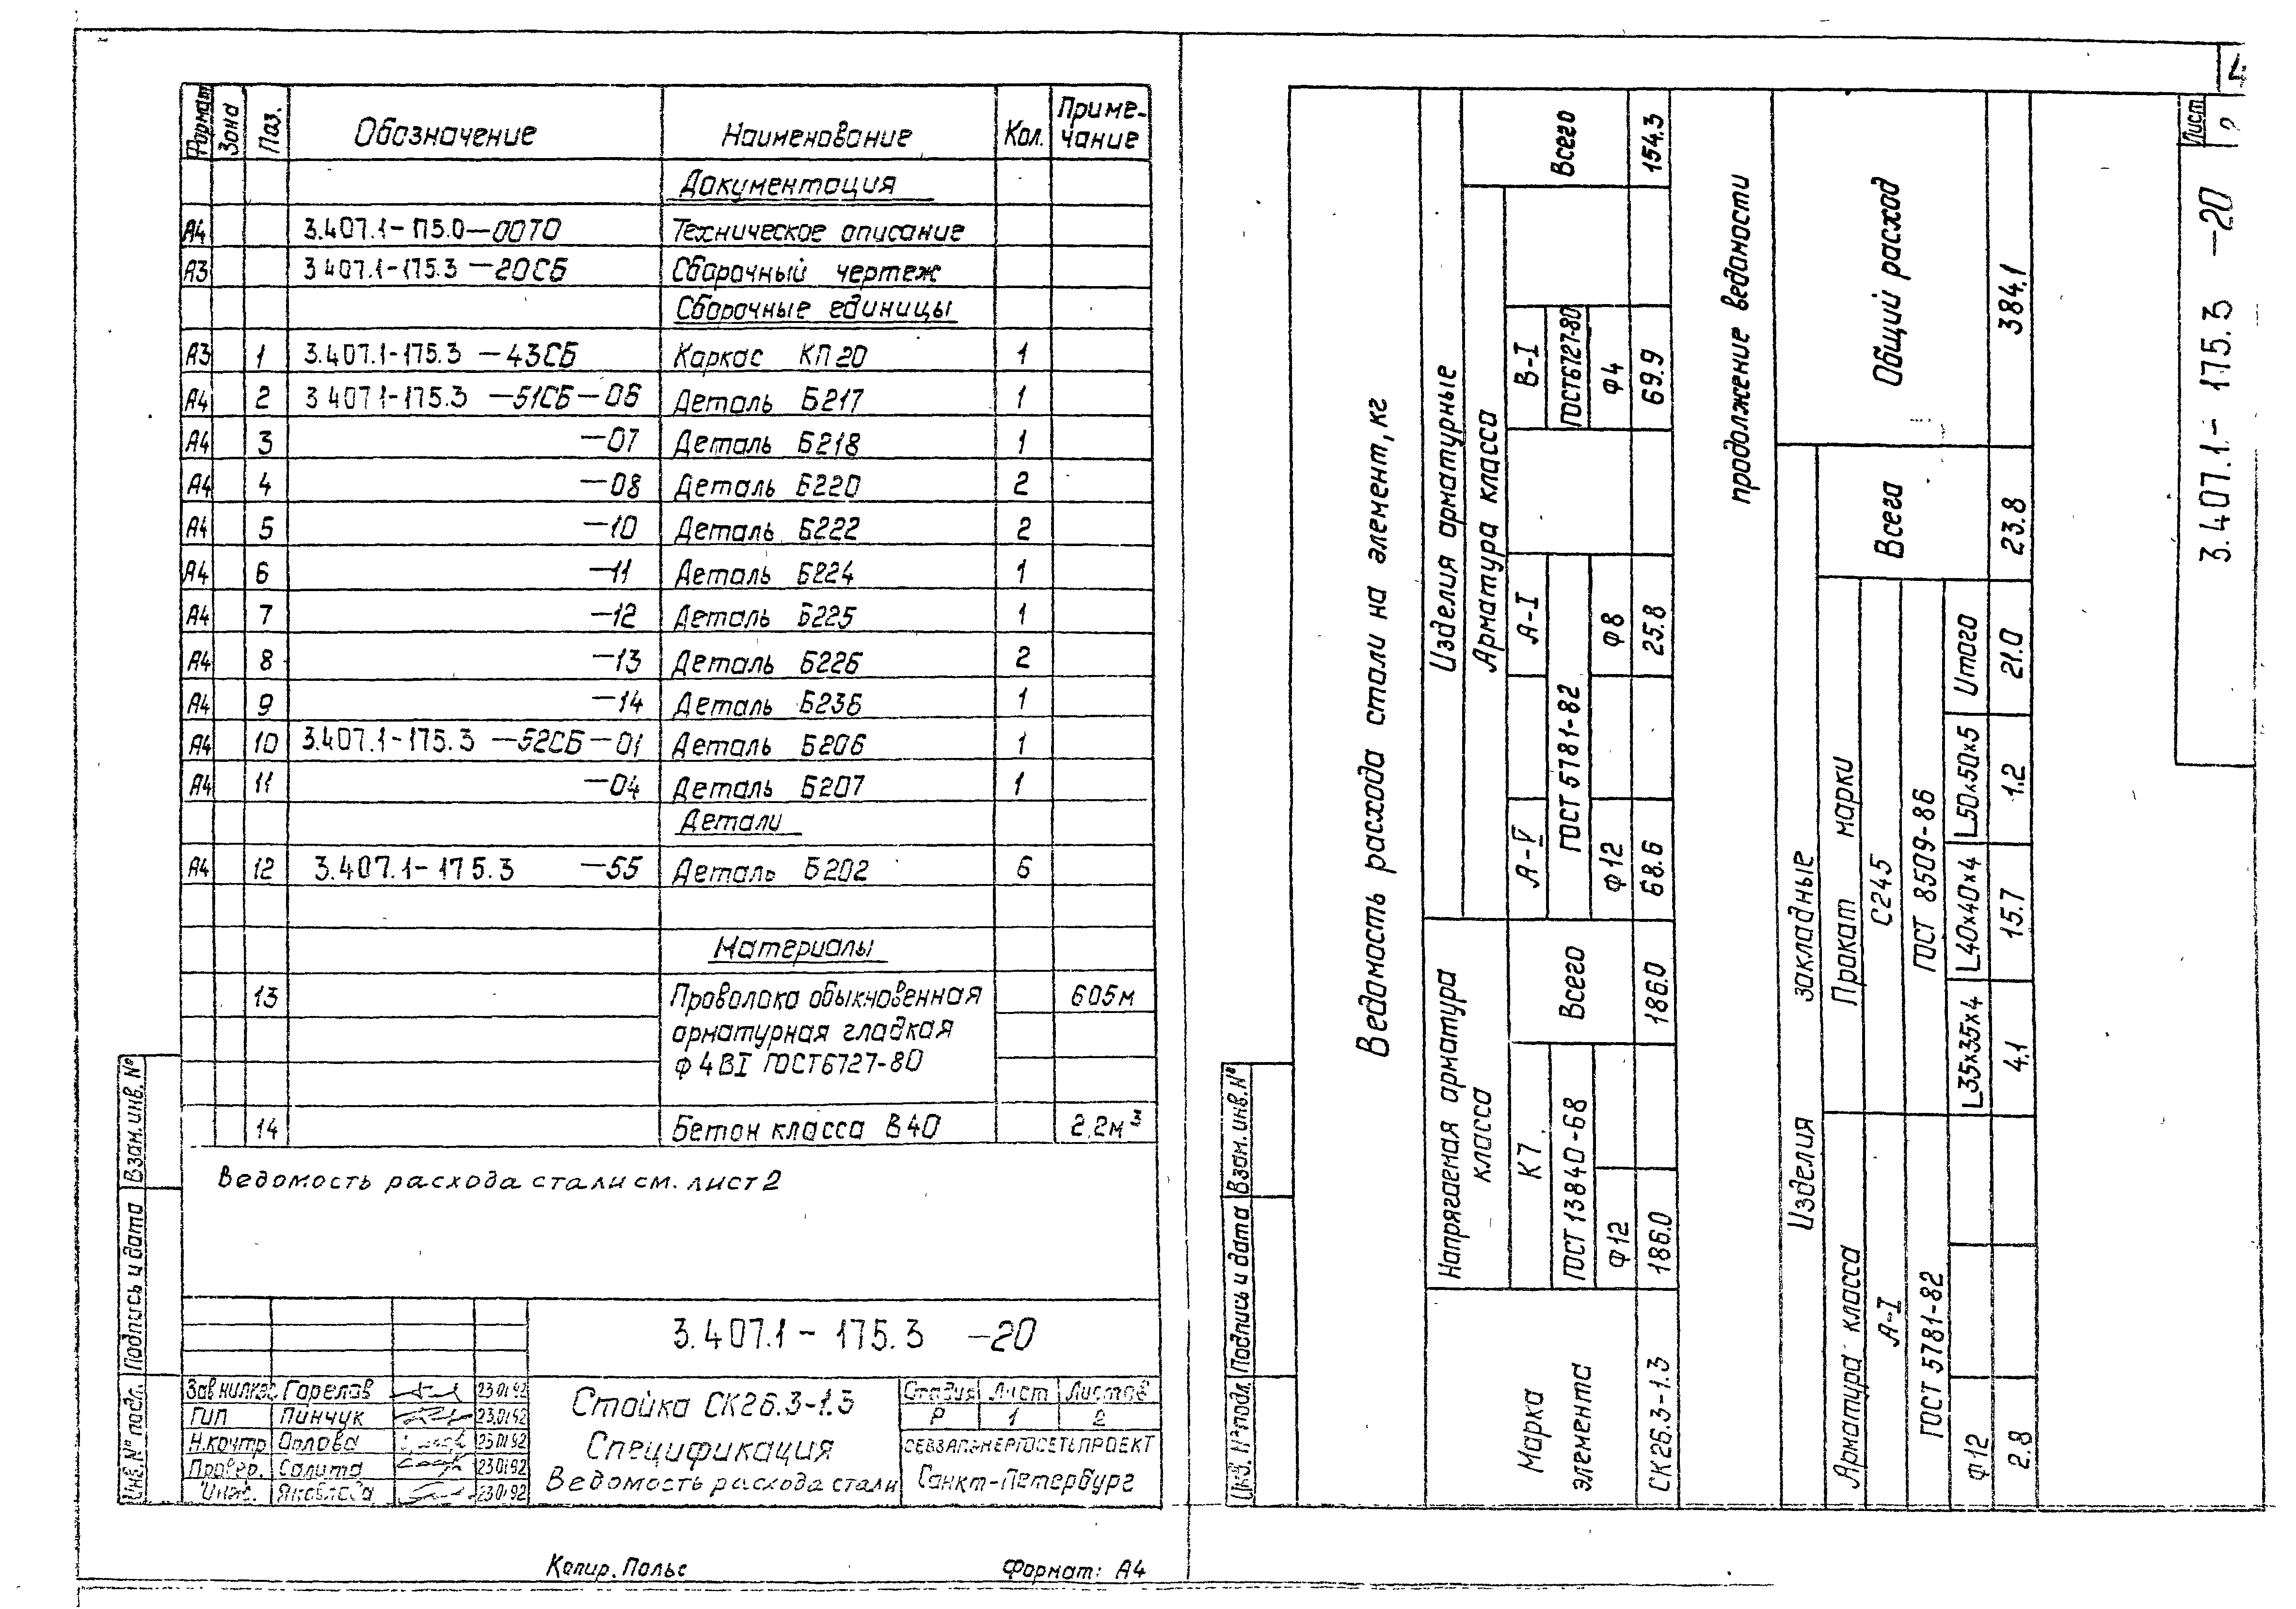 Формат Зона Поз. Обозначение Наименование Кол. Приме-чание
Документация
А4 3.407.1-175.0-00ТО Техническое описание
А3 3 407.1-175.3 -20СБ Сборочный чертеж
Сборочные единицы
А3 1 3.407.1-175.3 -43СБ Каркас КП20 1
А4 2 3 407 1-175.3 -51СБ-06 Деталь Б217 1
А4 3 -07 Деталь Б218 1
А4 4 -08 Деталь Б220 2
А4 5 -10 Деталь Б222 2
А4 6 -11 Деталь Б224 1
А4 7 -12 Деталь Б225 1
А4 8 -13 Деталь Б226 2
А4 9 -14 Деталь Б236 1
А4 10 3.407.1-175.3 -52СБ-01 Деталь Б206 1
А4 11 -04 Деталь Б207 1
Детали
А4 12 3.407.1-175.3 -55 Деталь Б202 6
Материалы
13 Проволока обыкновенная 605м
арматурная гладкая
Ф4ВI ГОСТ6727-80
14 Бетон класса В40 2.2м³
Ведомость расхода стали см. лист 2
Инв.№ подл. Подпись и дата Взам.инв.№
3.407.1-175.3 -20
Зав Горелов 23.01.92
ГИП Пинчук 23.01.92
Н.контр Орлова 23.01.92
Провер. Салита 23.01.92
Инж. Яковлева 23.01.92
Стойка СК26.3-1.3
Спецификация
Ведомость расхода стали
Стадия Лист Листов
Р 1 2
СЕВЗАПЭНЕРГОСЕТЬПРОЕКТ
Санкт-Петербург
Копир.
Формат: А4
4
Инв.№подл. Подпись и дата Взам.инв.№
Ведомость расхода стали на элемент, кг
Марка
элемента
Напрягаемая арматура
класса
Изделия арматурные
Арматура класса
К7 Всего А-V А-I В-I Всего
ГОСТ 13840-68 ГОСТ 5781-82 ГОСТ6727-80
Ф12 Ф12 Ф8 Ф4
СК26.3-1.3 186.0 186.0 68.6 25.8 69.9 154.3
продолжение ведомости
Изделия закладные
Общий расход
Арматура класса Прокат марки Всего
А-I С245
ГОСТ 5781-82 ГОСТ 8509-86
Ф12 L35х35х4 L40х40х4 L50х50х5 Итого
2.8 4.1 15.7 1.2 21.0 23.8 384.1
3.407.1-175.3 -20
Лист
2